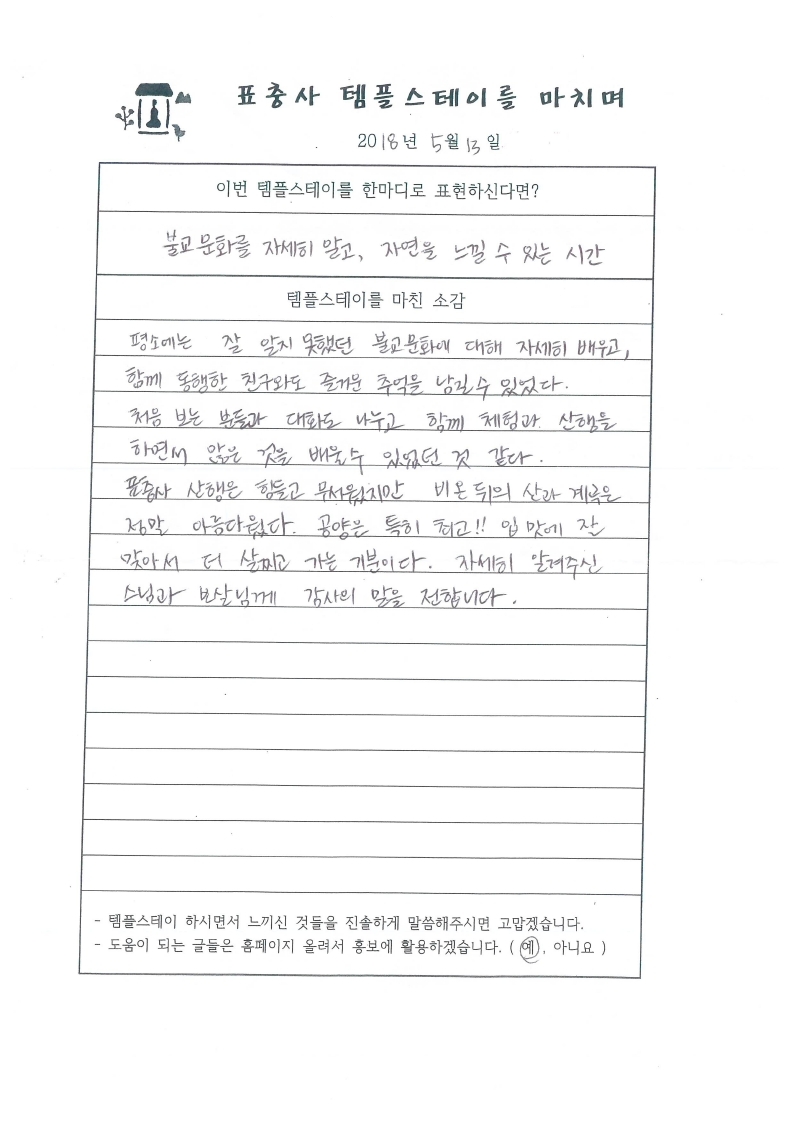 표충사 템플스테이를 마치며
2018년 5월 13일
이번 템플스테이를 한마디로 표현하신다면?
불교문화를 자세히 알고, 자연을 느낄 수 있는 시간
템플스테이를 마친 소감
평소에는 잘 알지 못했던 불교문화에 대해 자세히 배우고,
함께 동행한 친구와도 즐거운 추억을 남길 수 있었다.
처음 보는 분들과 대화도 나누고 함께 체험과 산행을
하면서 많은 것을 배울 수 있었던 것 같다.
표충사 산행은 힘들고 무서웠지만 비온 뒤의 산과 계곡은
정말 아름다웠다. 공양은 특히 최고!! 입맛에 잘
맞아서 더 살찌고 가는 기분이다. 자세히 알려주신
스님과 보살님께 감사의 말을 전합니다.
- 템플스테이 하시면서 느끼신 것들을 진솔하게 말씀해주시면 고맙겠습니다.
- 도움이 되는 글들은 홈페이지 올려서 홍보에 활용하겠습니다. ( 예, 아니요 )